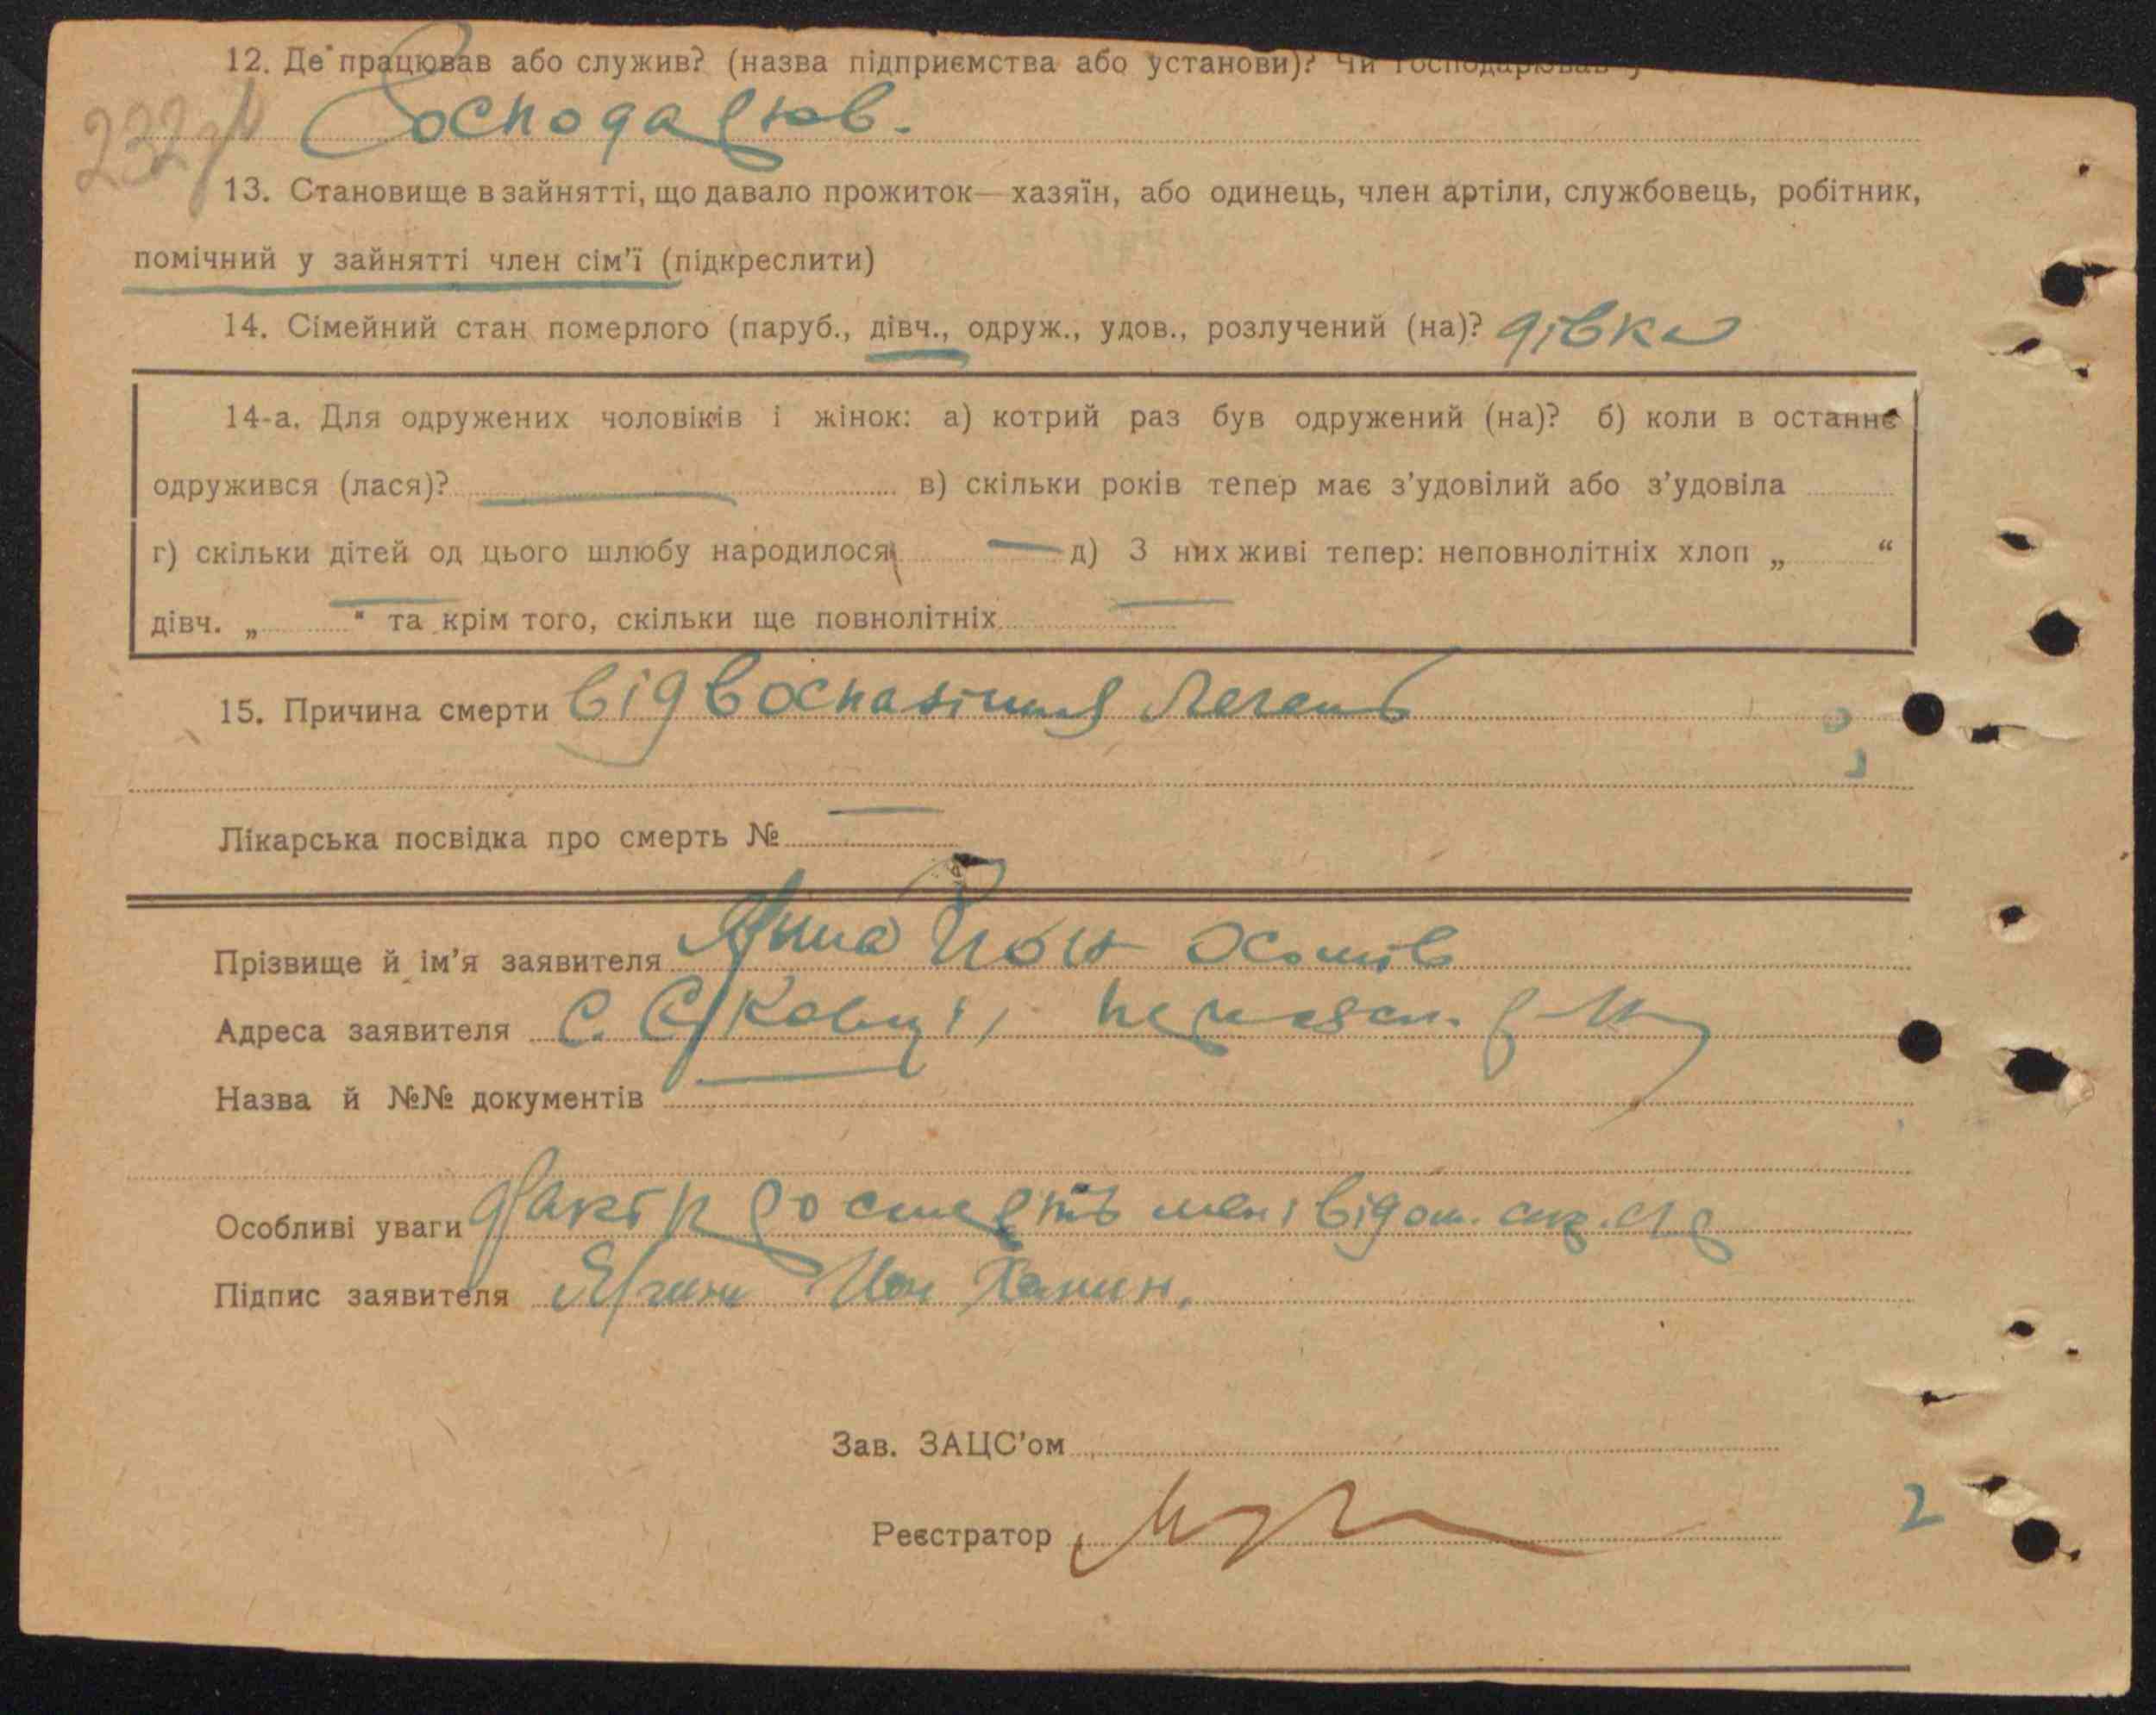 12. Де працював або служив? (назва підприємства або установи)? Чи господарював у
232
Господарюв.
13. Становище в зайнятті, що давало прожиток — хазяїн, або одинець, член артіли, службовець, робітник,
помічний у зайнятті член сім'ї (підкреслити)
14. Сімейний стан померлого (паруб., дівч., одруж., удов., розлучений (на)? дівка
14-а. Для одружених чоловіків і жінок: а) котрий раз був одружений (на)? б) коли в останнє
одружився (лася)? в) скільки років тепер має з'удовілий або з'удовіла
г) скільки дітей од цього шлюбу народилося д) З них живі тепер: неповнолітніх хлоп „ “
дівч. „ “ та крім того, скільки ще повнолітніх
15. Причина смерти від воспалінія легень
Лікарська посвідка про смерть №
Прізвище й ім'я заявителя
Адреса заявителя С.
Назва й №№ документів
Особливі уваги Факт смерть мені відом.
Підпис заявителя
Зав. ЗАЦС'ом
Реєстратор
2